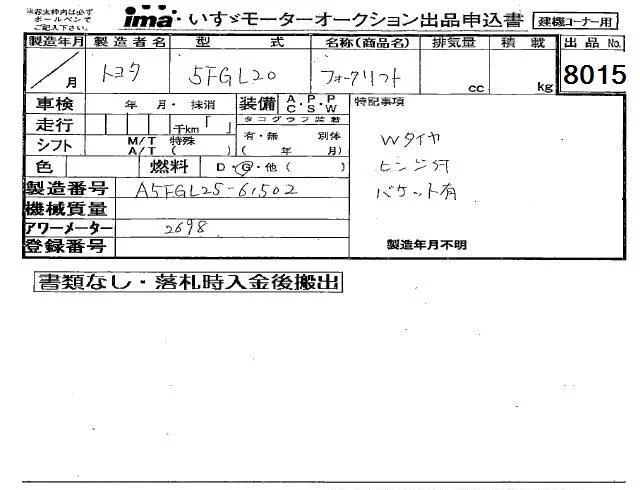 ※赤太枠内は必ず
ボールペンで
ご記入下さい。
ima・いすゞモーターオークション出品申込書
建機コーナー用
製造年月 製造者名 型式 名称(商品名) 排気量 積載 出品No.
/月 トヨタ 5FGL20 フォークリフト cc kg 8015
車検 年 月・抹消 装備 A/C・P/S・P/W 特記事項
走行 千km「 」 タコグラフ装着
有・無 別体
シフト M/T A/T 特殊( ) ( 年 月)
Wタイヤ
色 燃料 D・G・他( )
ヒンジ付
製造番号 A5FGL25-61502
バケット有
機械質量
アワーメーター 2698
登録番号
製造年月不明
書類なし・落札時入金後搬出